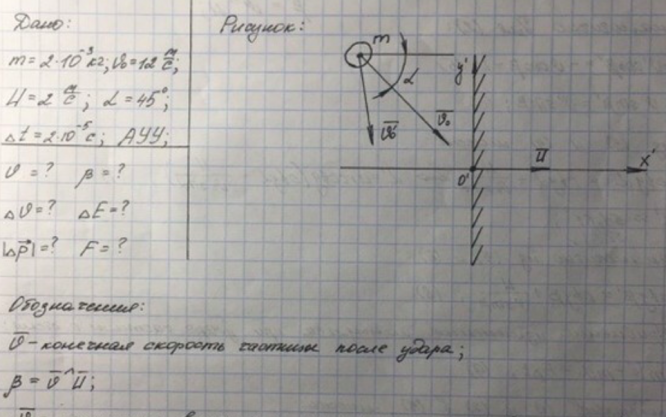 Дано:
m=2·10⁻³кг; V₀=12 м/с;
U=2 м/с; α=45°;
Δt=2·10⁻⁵с; АУУ;
V=? β=?
ΔV=? ΔE=?
|Δp⃗|=? F=?
Рисунок:
m
y'
α
V̄₀
V̄₀'
Ū
x'
O'
Обозначения:
V̄-конечная скорость частицы после удара;
β=V̄^Ū;